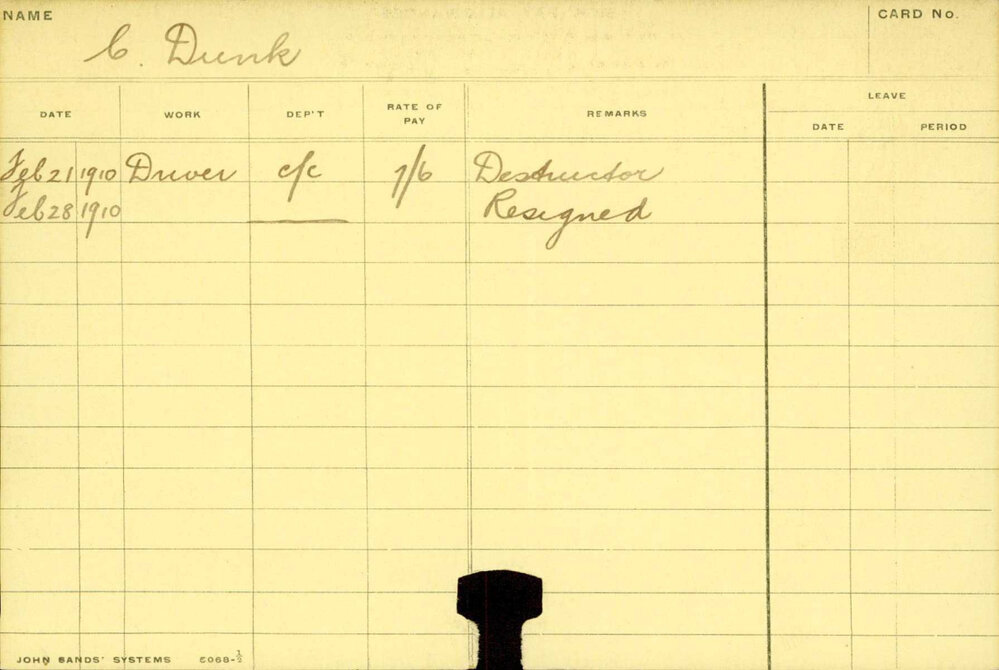 NAME
C. Dunk
CARD No.
DATE WORK DEP'T RATE OF PAY REMARKS LEAVE
DATE PERIOD
Feb 21 1910 Driver c/c 7/6 Destructor
Feb 28 1910 Resigned
JOHN SANDS' SYSTEMS 5068-½